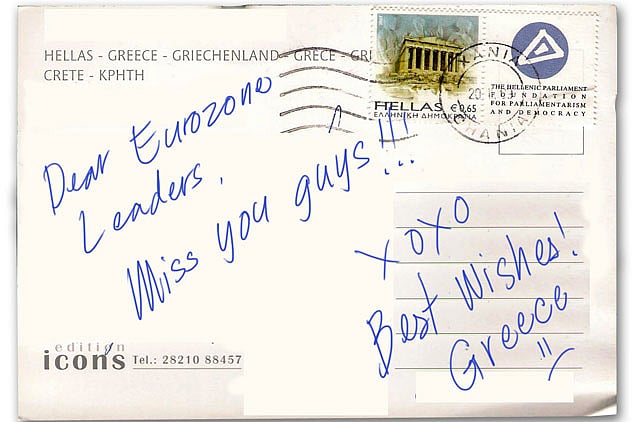 HELLAS - GREECE - GRIECHENLAND - GRECE - GRI
CRETE - ΚΡΗΤΗ
HELLAS €0,65
ΕΛΛΗΝΙΚΗ ΔΗΜΟΚΡΑΤΙΑ
THE HELLENIC PARLIAMENT
FOUNDATION
FOR PARLIAMENTARISM
AND DEMOCRACY
HANIA
CHANIA
Dear Eurozone
Leaders,
Miss you guys!!!...
XOXO
Best Wishes!
Greece
edition
icons Tel.: 28210 88457